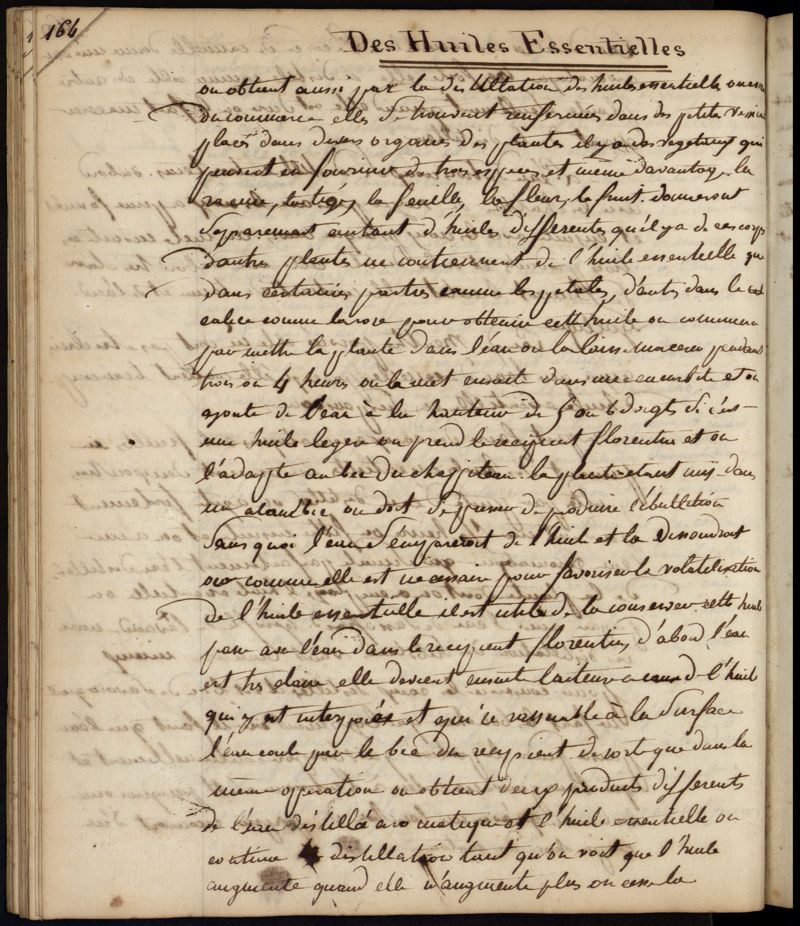 164
Des Huiles Essentielles
on obtient aussi par la distillation des huiles essentielles
Du commerce elles se trouvent renfermées dans des petites
places dans divers organes des plantes il y a des vegetaux qui
peuvent en fournir de trois especes et même davantage la
racine, la tige, la feuille, la fleur, le fruit donneront
separement autant d'huiles differentes qu'il y a de ces corps
d'autres plantes ne contiennent de l'huile essentielle que
dans certaines parties comme les petales, d'autres dans le
calice comme la rose pour obtenir cette huile on commence
par mettre la plante dans l'eau on la laisse macerer pendant
trois ou 4 heures on la met ensuite dans une cucurbite et on
ajoute de l'eau à la hauteur de 5 ou 6 doigts si c'est
une huile legere on prend le recipient florentin et on
l'adapte au bec du chapiteau la plante etant mise dans
un alambic on doit se presser de produire l'ébullition
sans quoi l'eau s'empareroit de l'huile et la dissoudroit
or comme elle est necessaire pour favoriser la volatilisation
de l'huile essentielle il est utile de la conserver cette huile
passe avec l'eau dans le recipient florentin, d'abord l'eau
est très claire elle devient ensuite laiteuse a cause de l'huile
qui y est interposée et qui se rassemble à la surface
l'eau coule par le bec du recipient de sorte que dans la
même operation on obtient deux produits differents
de l'eau distillée aromatique et l'huile essentielle on
continue la distillation tant qu'on voit que l'huile
augmente quand elle n'augmente plus on cesse la